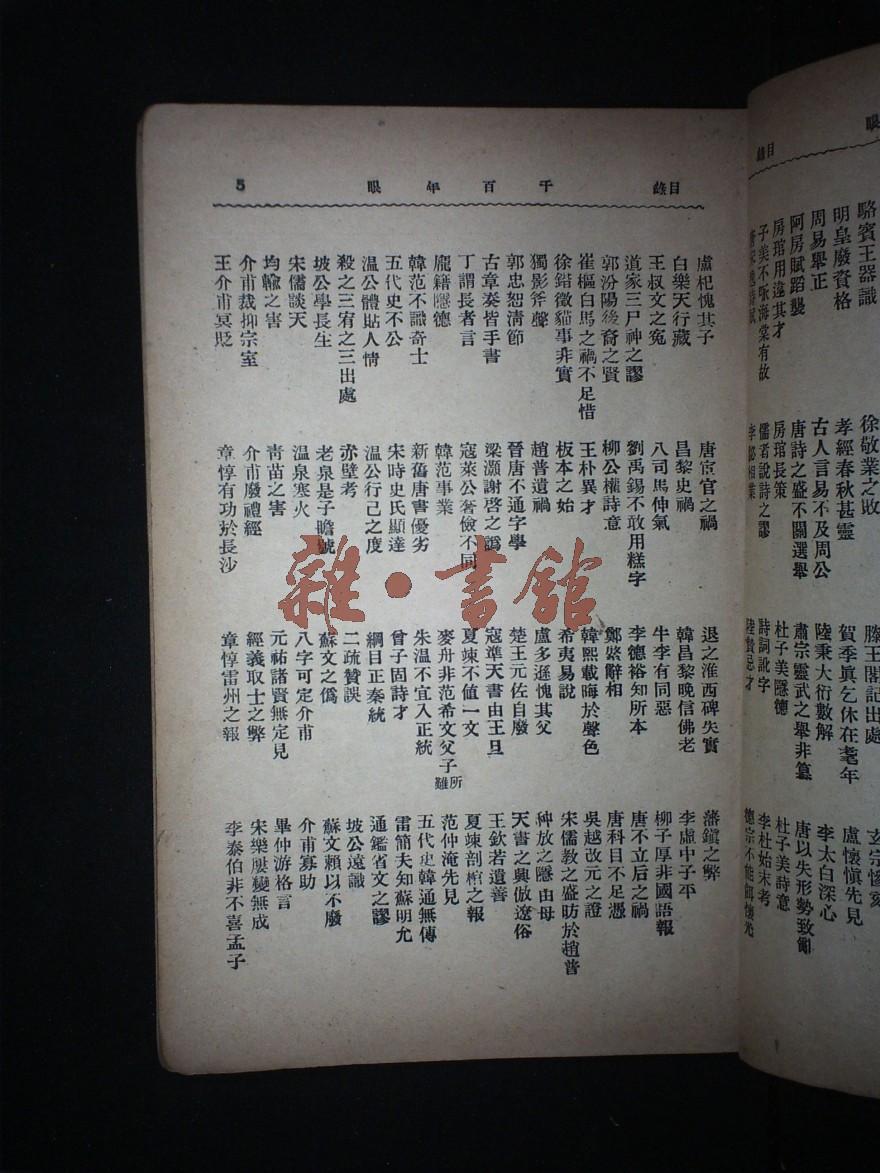 目錄
眼
駱賓王器識
徐敬業之敗
滕王閣記出處
玄宗慘
明皇廢資格
孝經春秋甚靈
賀季真乞休在耄年
盧懷愼先見
周易舉正
古人言易不及周公
陸秉大衍數解
李太白深心
阿房賦蹈襲
唐詩之盛不關選舉
肅宗靈武之舉非簒
唐以失形勢致
房琯用違其才
房琯長策
杜子美隱德
杜子美詩意
子美不咏海棠有故
儒者說詩之謬
詩詞訛字
李杜始末考
相業
陸贄忌才
德宗不能餌懷光
目錄
千百年眼
5
盧杞愧其子
唐宦官之禍
退之淮西碑失實
藩鎭之弊
白樂天行藏
昌黎史禍
韓昌黎晚信佛老
李虛中子平
王叔文之冤
八司馬伸氣
牛李有同惡
柳子厚非國語報
道家三尸神之謬
劉禹錫不敢用糕字
李德裕知所本
唐不立后之禍
郭汾陽後裔之賢
柳公權詩意
鄭綮辭相
唐科目不足憑
崔樞白馬之禍不足惜
王朴異才
韓熙載晦於聲色
吳越改元之證
徐鍇徵貓事非實
板本之始
希夷易說
宋儒教之盛昉於趙普
獨影斧聲
趙普遺禍
盧多遜愧其父
种放之隱由母
郭忠恕淸節
晉唐不通字學
楚王元佐自廢
天書之興倣遼俗
古章奏皆手書
梁灝謝啓之譌
寇準天書由王旦
王欽若遺善
丁謂長者言
寇萊公奢儉不同
夏竦不値一文
夏竦剖棺之報
龐籍隱德
韓范事業
麥舟非范希文父子所難
范仲淹先見
韓范不識奇士
新舊唐書優劣
朱温不宜入正統
五代史韓通無傳
五代史不公
宋時史氏顯達
曾子固詩才
雷簡夫知蘇明允
温公體貼人情
温公行己之度
綱目正秦統
通鑑省文之謬
殺之三宥之三出處
赤壁考
二疏贊誤
坡公遠識
坡公學長生
老泉是子瞻號
蘇文之僞
蘇文賴以不廢
宋儒談天
温泉寒火
八字可定介甫
介甫寡助
均輸之害
靑苗之害
元祐諸賢無定見
畢仲游格言
介甫裁抑宗室
介甫廢禮經
經義取士之弊
宋樂屢變無成
王介甫冥貶
章惇有功於長沙
章惇雷州之報
李泰伯非不喜孟子
雜·書館